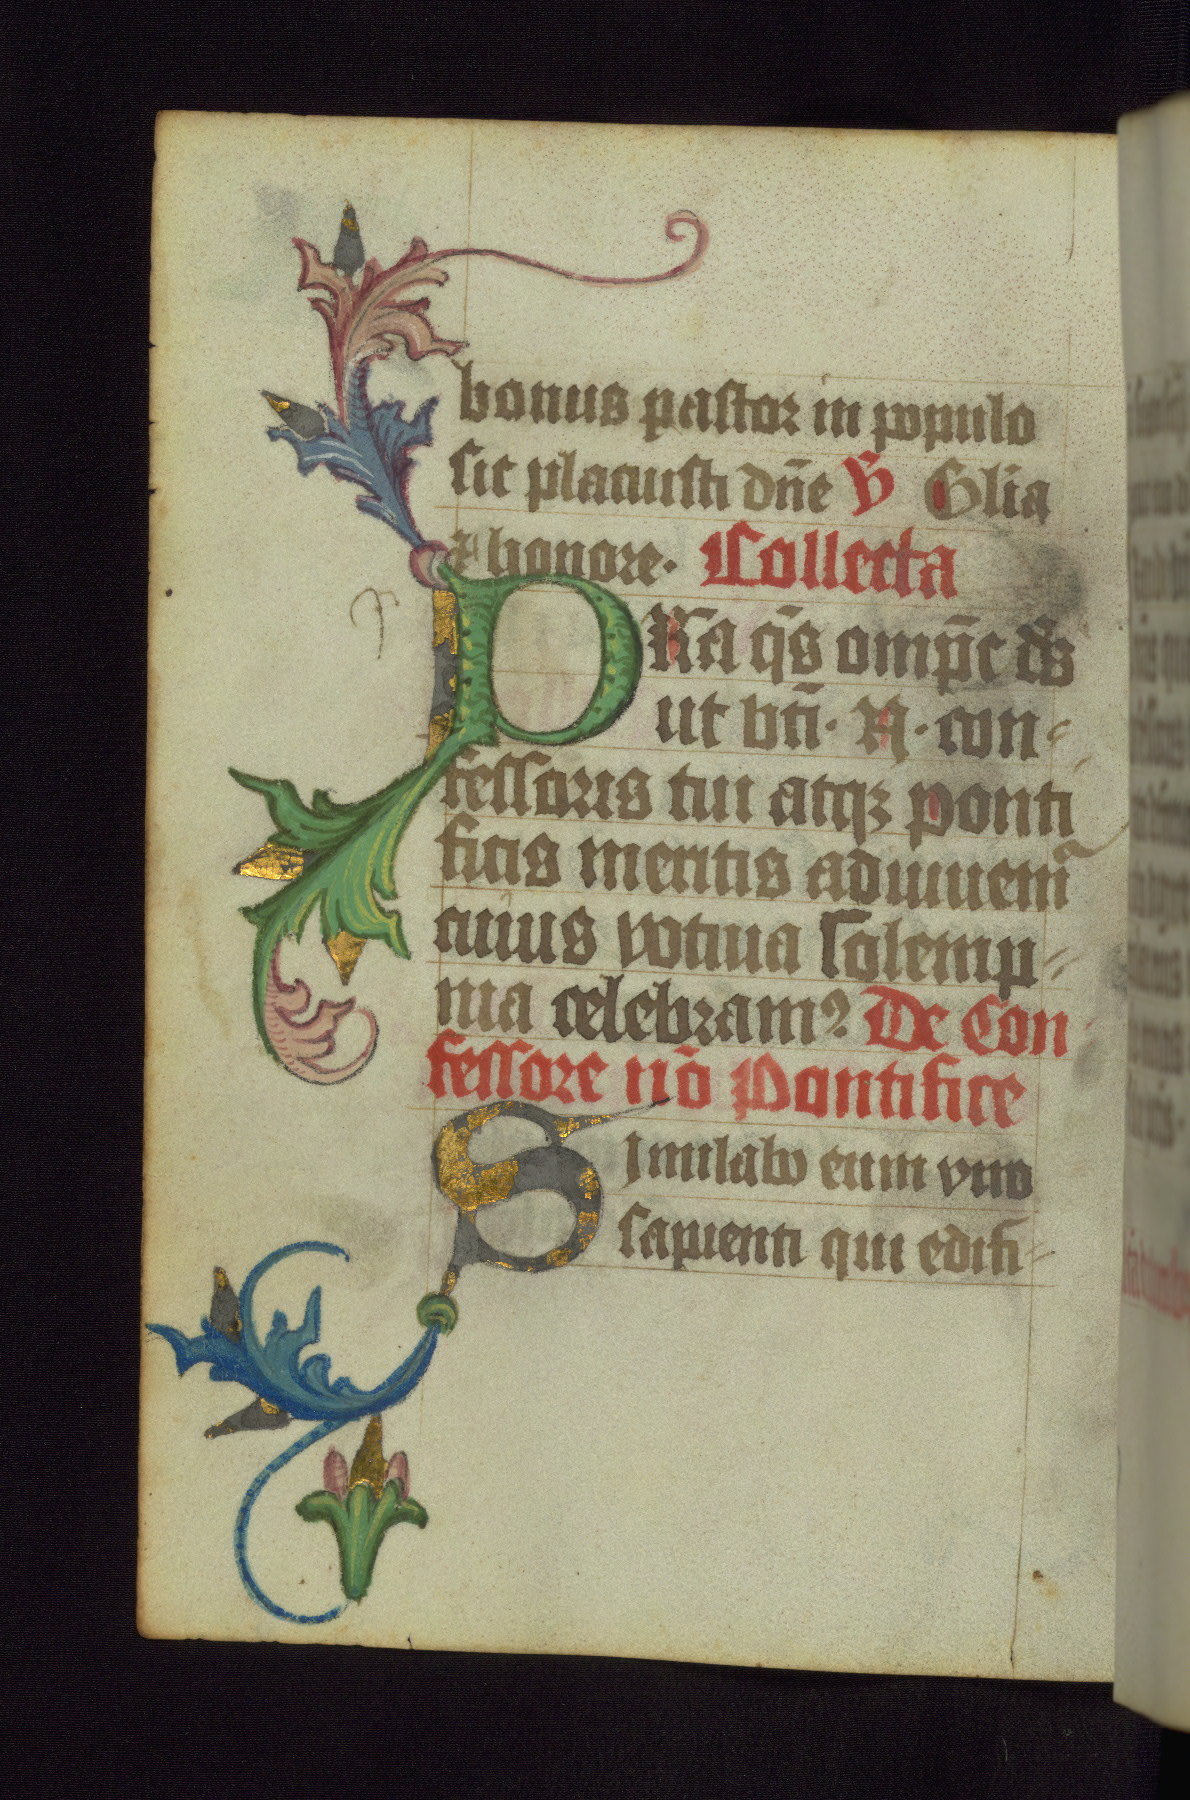 bonus pastor in populo
sic placuisti dn̄e V̄ Gl̄ia
⁊ honore. Collecta
PR̄a q̄s omp̄c ds̄
ut bt̄i. N. con-
fessoris tui atqꝫ ponti
ficis meritis adiuuemᷣ
cuius votiua solemp-
nia celebram? De Con
fessore nō Pontifice
Similabo eum viro
sapienti qui edifi-